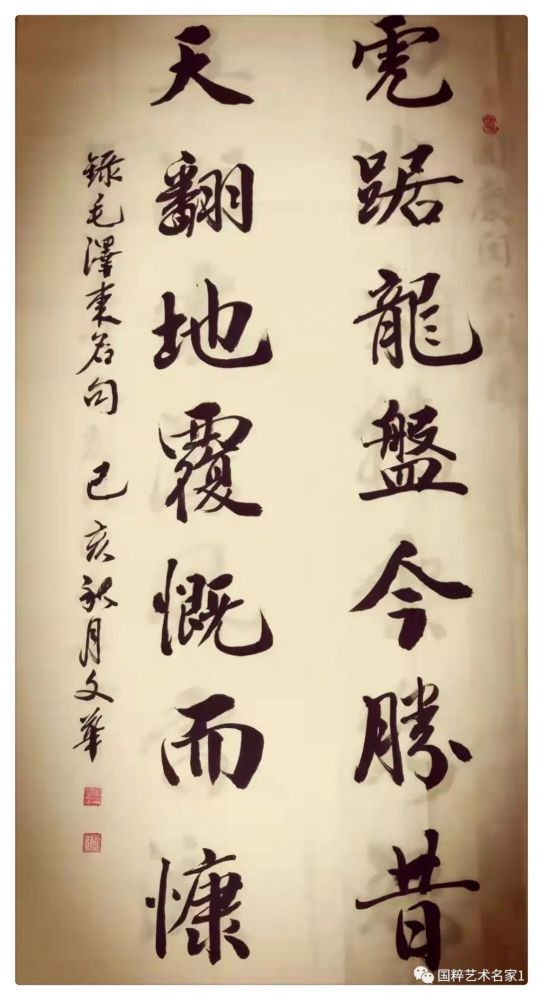 虎踞龍盤今勝昔
天翻地覆慨而慷
錄毛澤東名句 己亥秋月文華
国粹艺术名家1